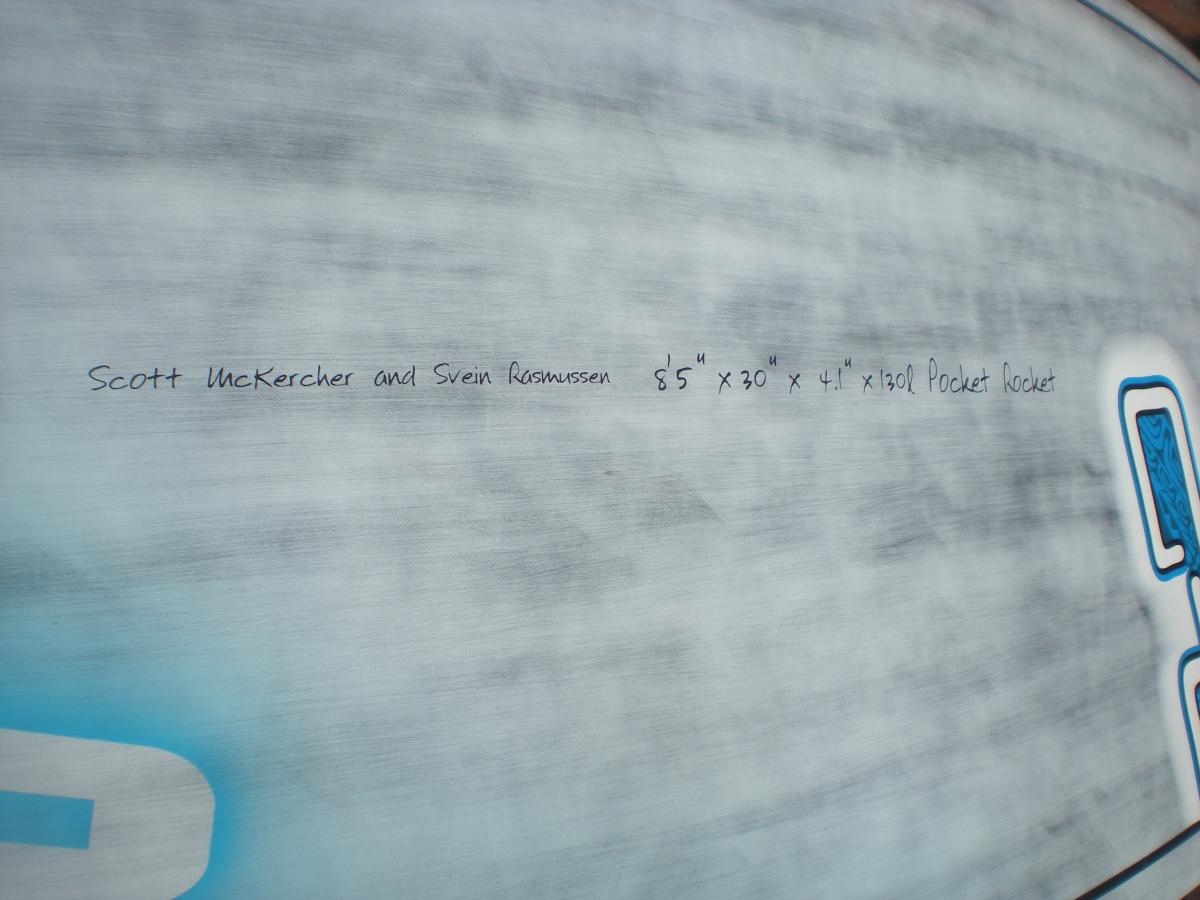 Scott McKercher and Svein Rasmussen 8'5" x 30" x 4.1" x 130l Pocket Rocket